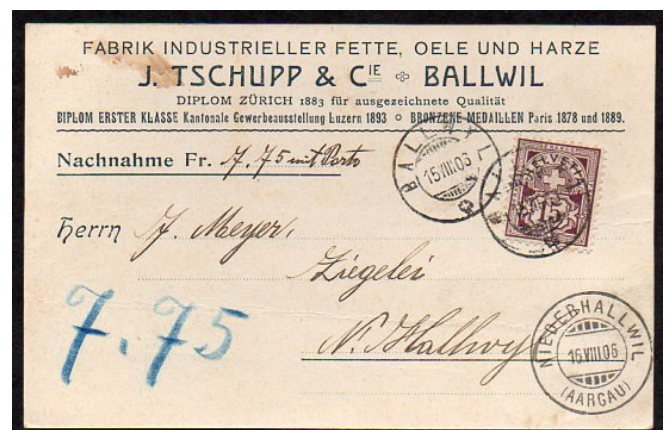 FABRIK INDUSTRIELLER FETTE, OELE UND HARZE
J. TSCHUPP & CIE BALLWIL
DIPLOM ZÜRICH 1883 für ausgezeichnete Qualität
DIPLOM ERSTER KLASSE Kantonale Gewerbeausstellung Luzern 1893 ○ BRONZENE MEDAILLEN Paris 1878 und 1889.
Nachnahme Fr. 7.75 mit Porto
BALLWYL
15.VIII.06
HELVETIA
15
Herrn J. Meyer,
Ziegelei
N. Hallwyl
7.75
NIEDERHALLWIL
16.VIII.06
(AARGAU)